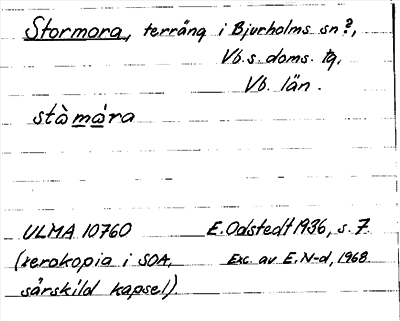 Stormora, terräng i Bjurholms sn?,
Vb. s. doms. tg,
Vb. län.
stòmára
ULMA 10760 E. Odstedt 1936, s. 7
(xerokopia i SOA, Exc. av E. N-d, 1968
särskild kapsel)